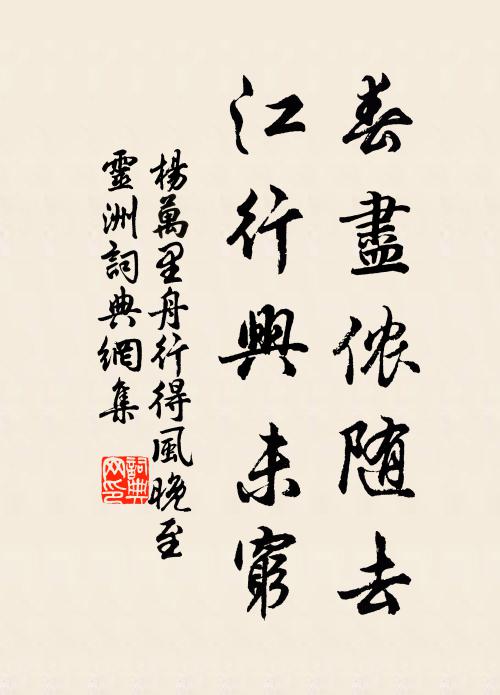 春盡侬随去
江行興未窮
楊萬里舟行得風晚至
靈洲詞典網集
詞典网印